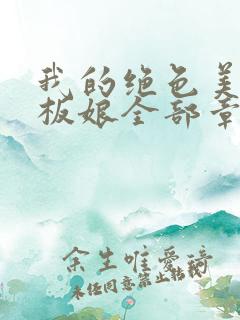 我的绝色美
板娘全部章
余生唯爱琦
未经同意禁止转载